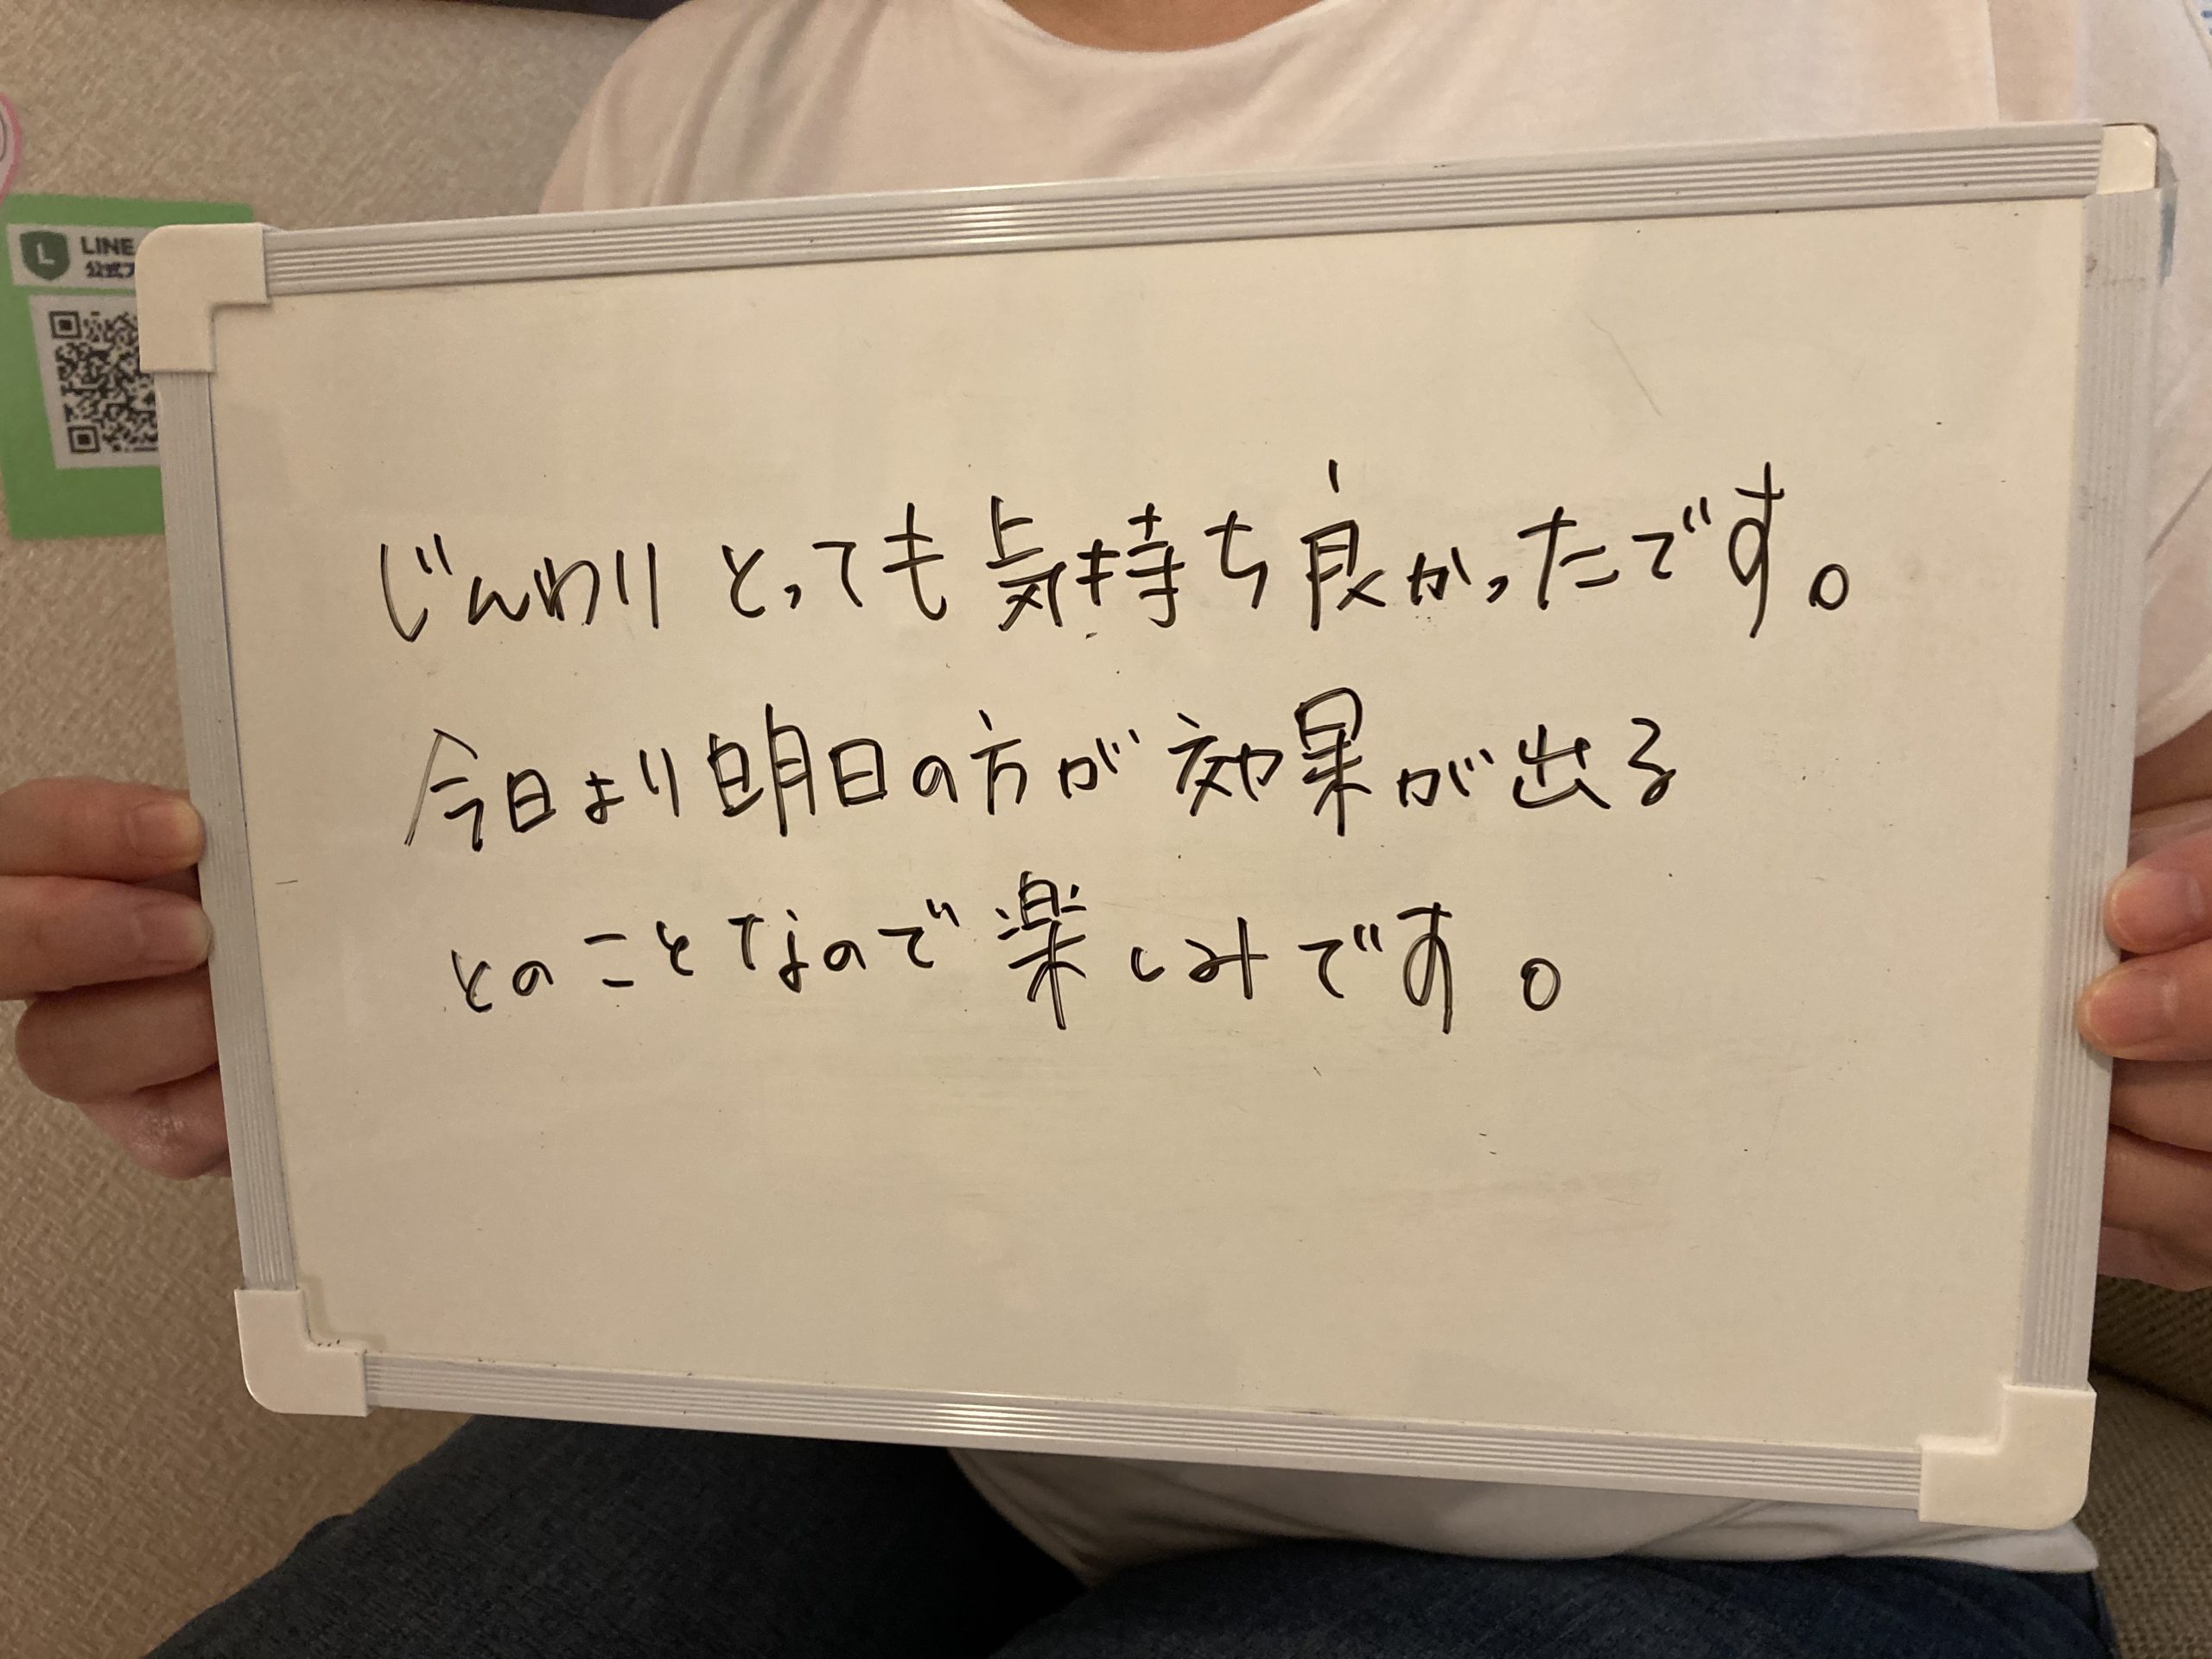 LINE
公式ア
じんわりとっても気持ち良かったです。
今日より明日の方が効果が出る
とのことなので楽しみです。